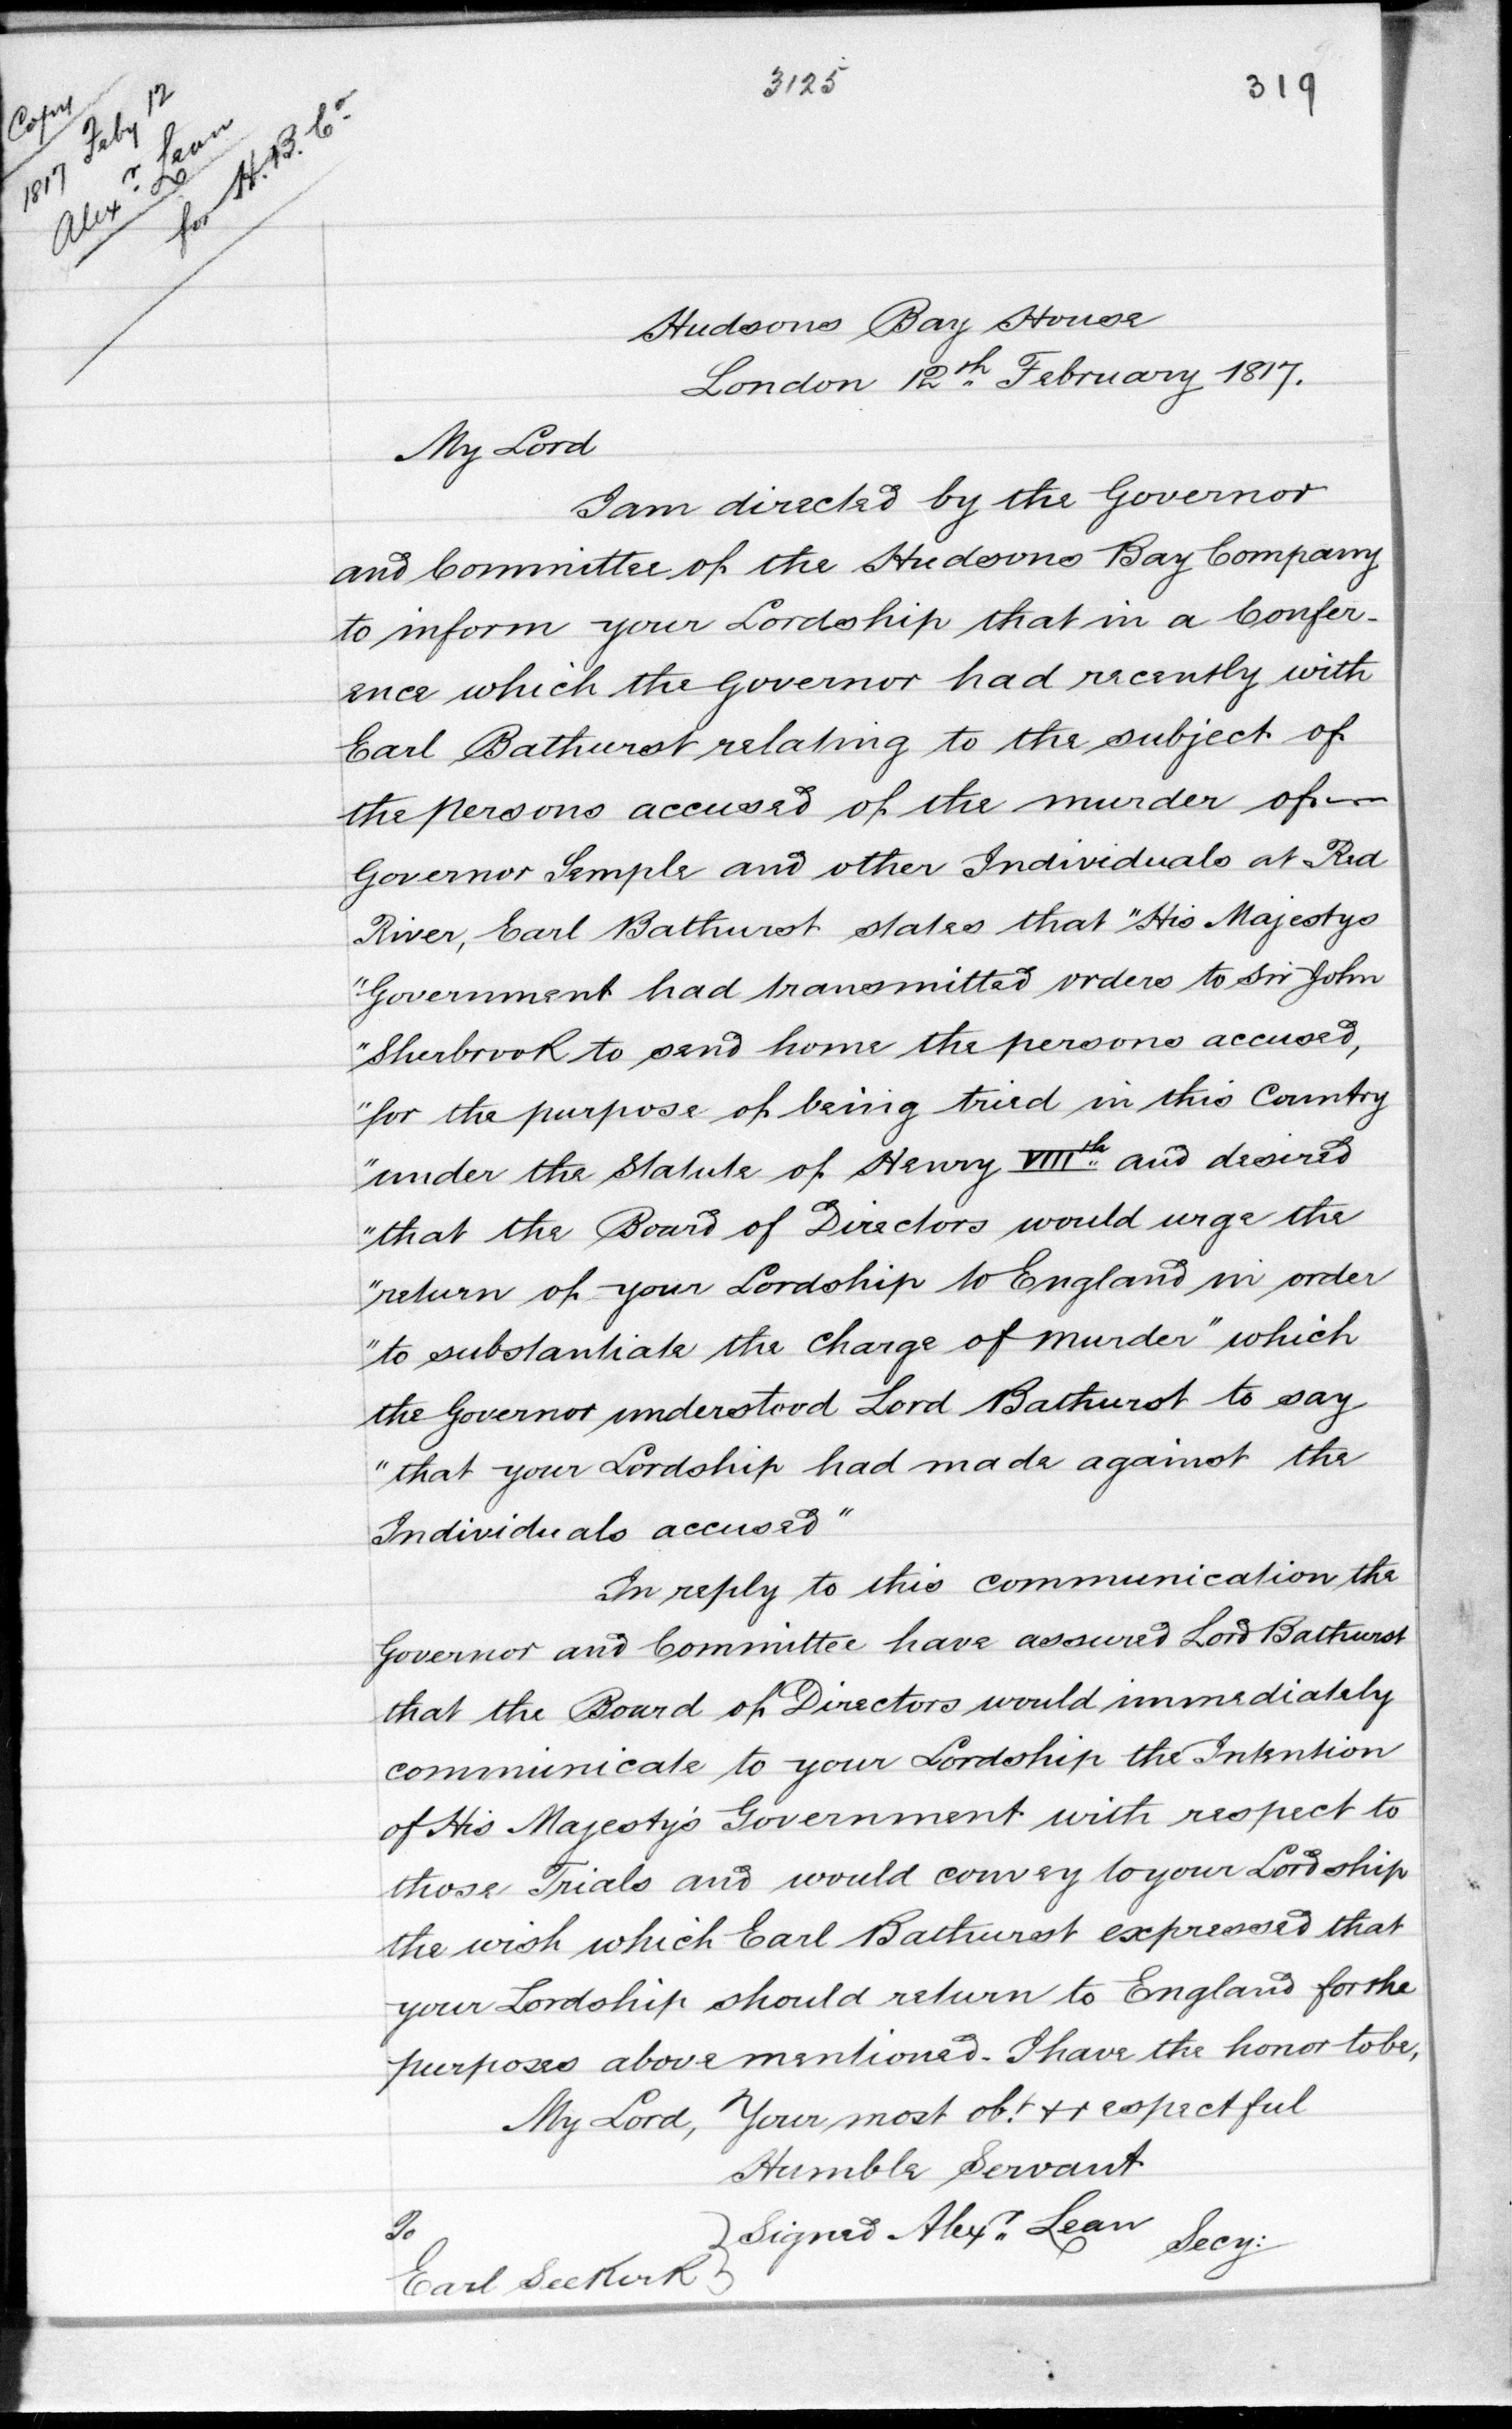 3125
319
Copy
1817 Feby 12
Alexr. Lean
for H. B. Co.
Hudsons Bay House
London 12th February 1817.
My Lord
I am directed by the Governor
and Committee of the Hudsons Bay Company
to inform your Lordship that in a Confer-
ence which the Governor had recently with
Earl Bathurst relating to the subject of
the persons accused of the murder of —
Governor Semple and other Individuals at Red
River, Earl Bathurst states that "His Majestys
"Government had transmitted orders to Sir John
"Sherbrook to send home the persons accused,
"for the purpose of being tried in this Country
"under the Statute of Henry VIIIth and desired
"that the Board of Directors would urge the
"return of your Lordship to England in order
"to substantiate the Charge of Murder" which
the Governor understood Lord Bathurst to say
"that your Lordship had made against the
Individuals accused"
In reply to this communication the
Governor and Committee have assured Lord Bathurst
that the Board of Directors would immediately
communicate to your Lordship the Intention
of His Majesty's Government with respect to
those Trials and would convey to your Lordship
the wish which Earl Bathurst expressed that
your Lordship should return to England for the
purposes above mentioned. I have the honor to be,
My Lord, Your most obt. & respectful
Humble Servant
To } Signed Alexr. Lean Secy:
Earl Seekirk }